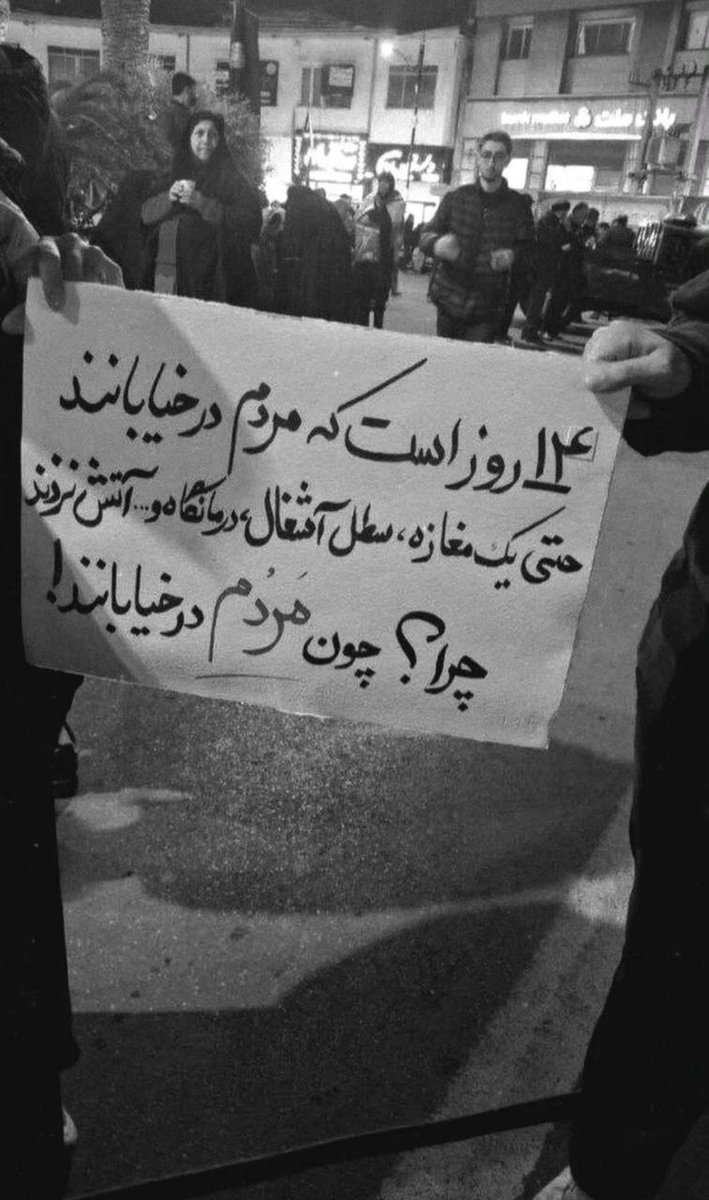 بانک ملت
۱۴ روز است که مردم در خیابانند
حتی یک مغازه، سطل آشغال، درمانگاه و... آتش نزدند
چرا؟ چون مَردُم در خیابانند!